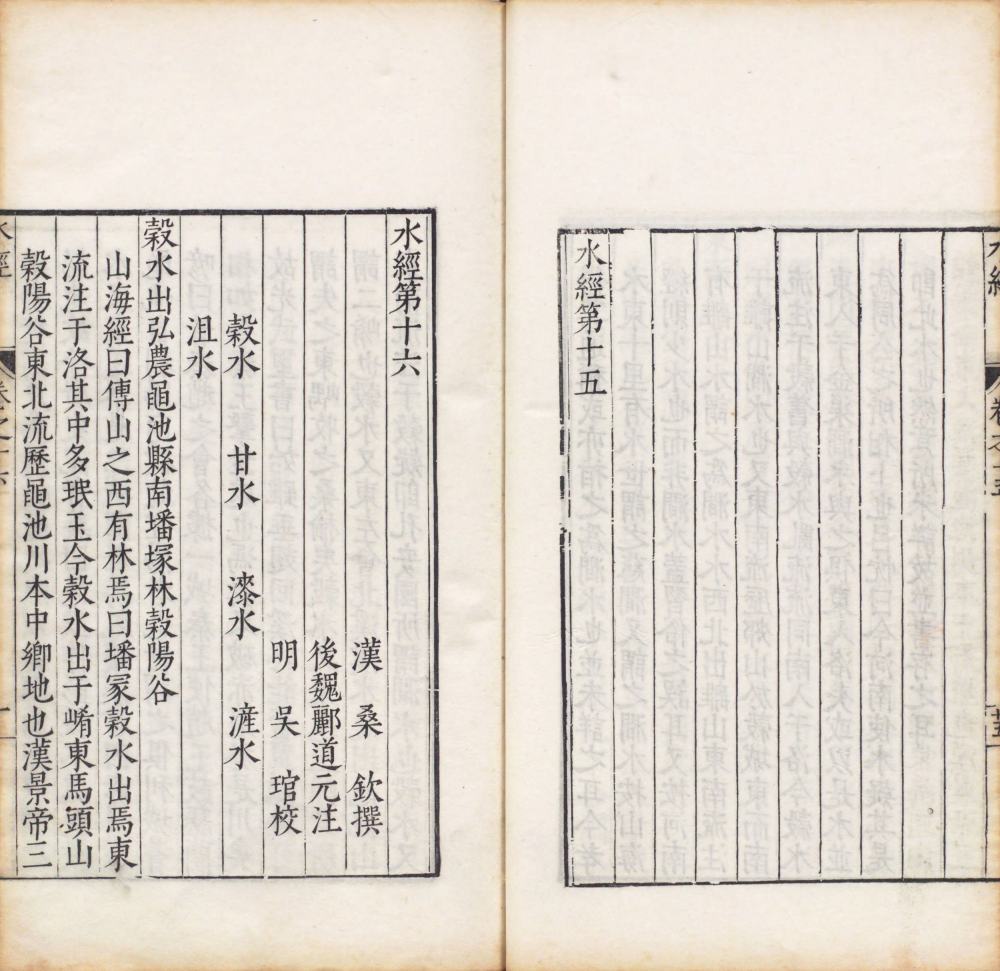 水經
卷之十五
廿五
水經第十五
水經第十六
漢 桑 欽撰
後魏酈道元注
明 吳 琯校
穀水 甘水 漆水 滻水
沮水
穀水出弘農黽池縣南墦塚林穀陽谷
山海經曰傅山之西有林焉曰墦冢穀水出焉東
流注于洛其中多珉玉今穀水出于崤東馬頭山
穀陽谷東北流歷黽池川本中鄉地也漢景帝三
水經
卷之十六
一